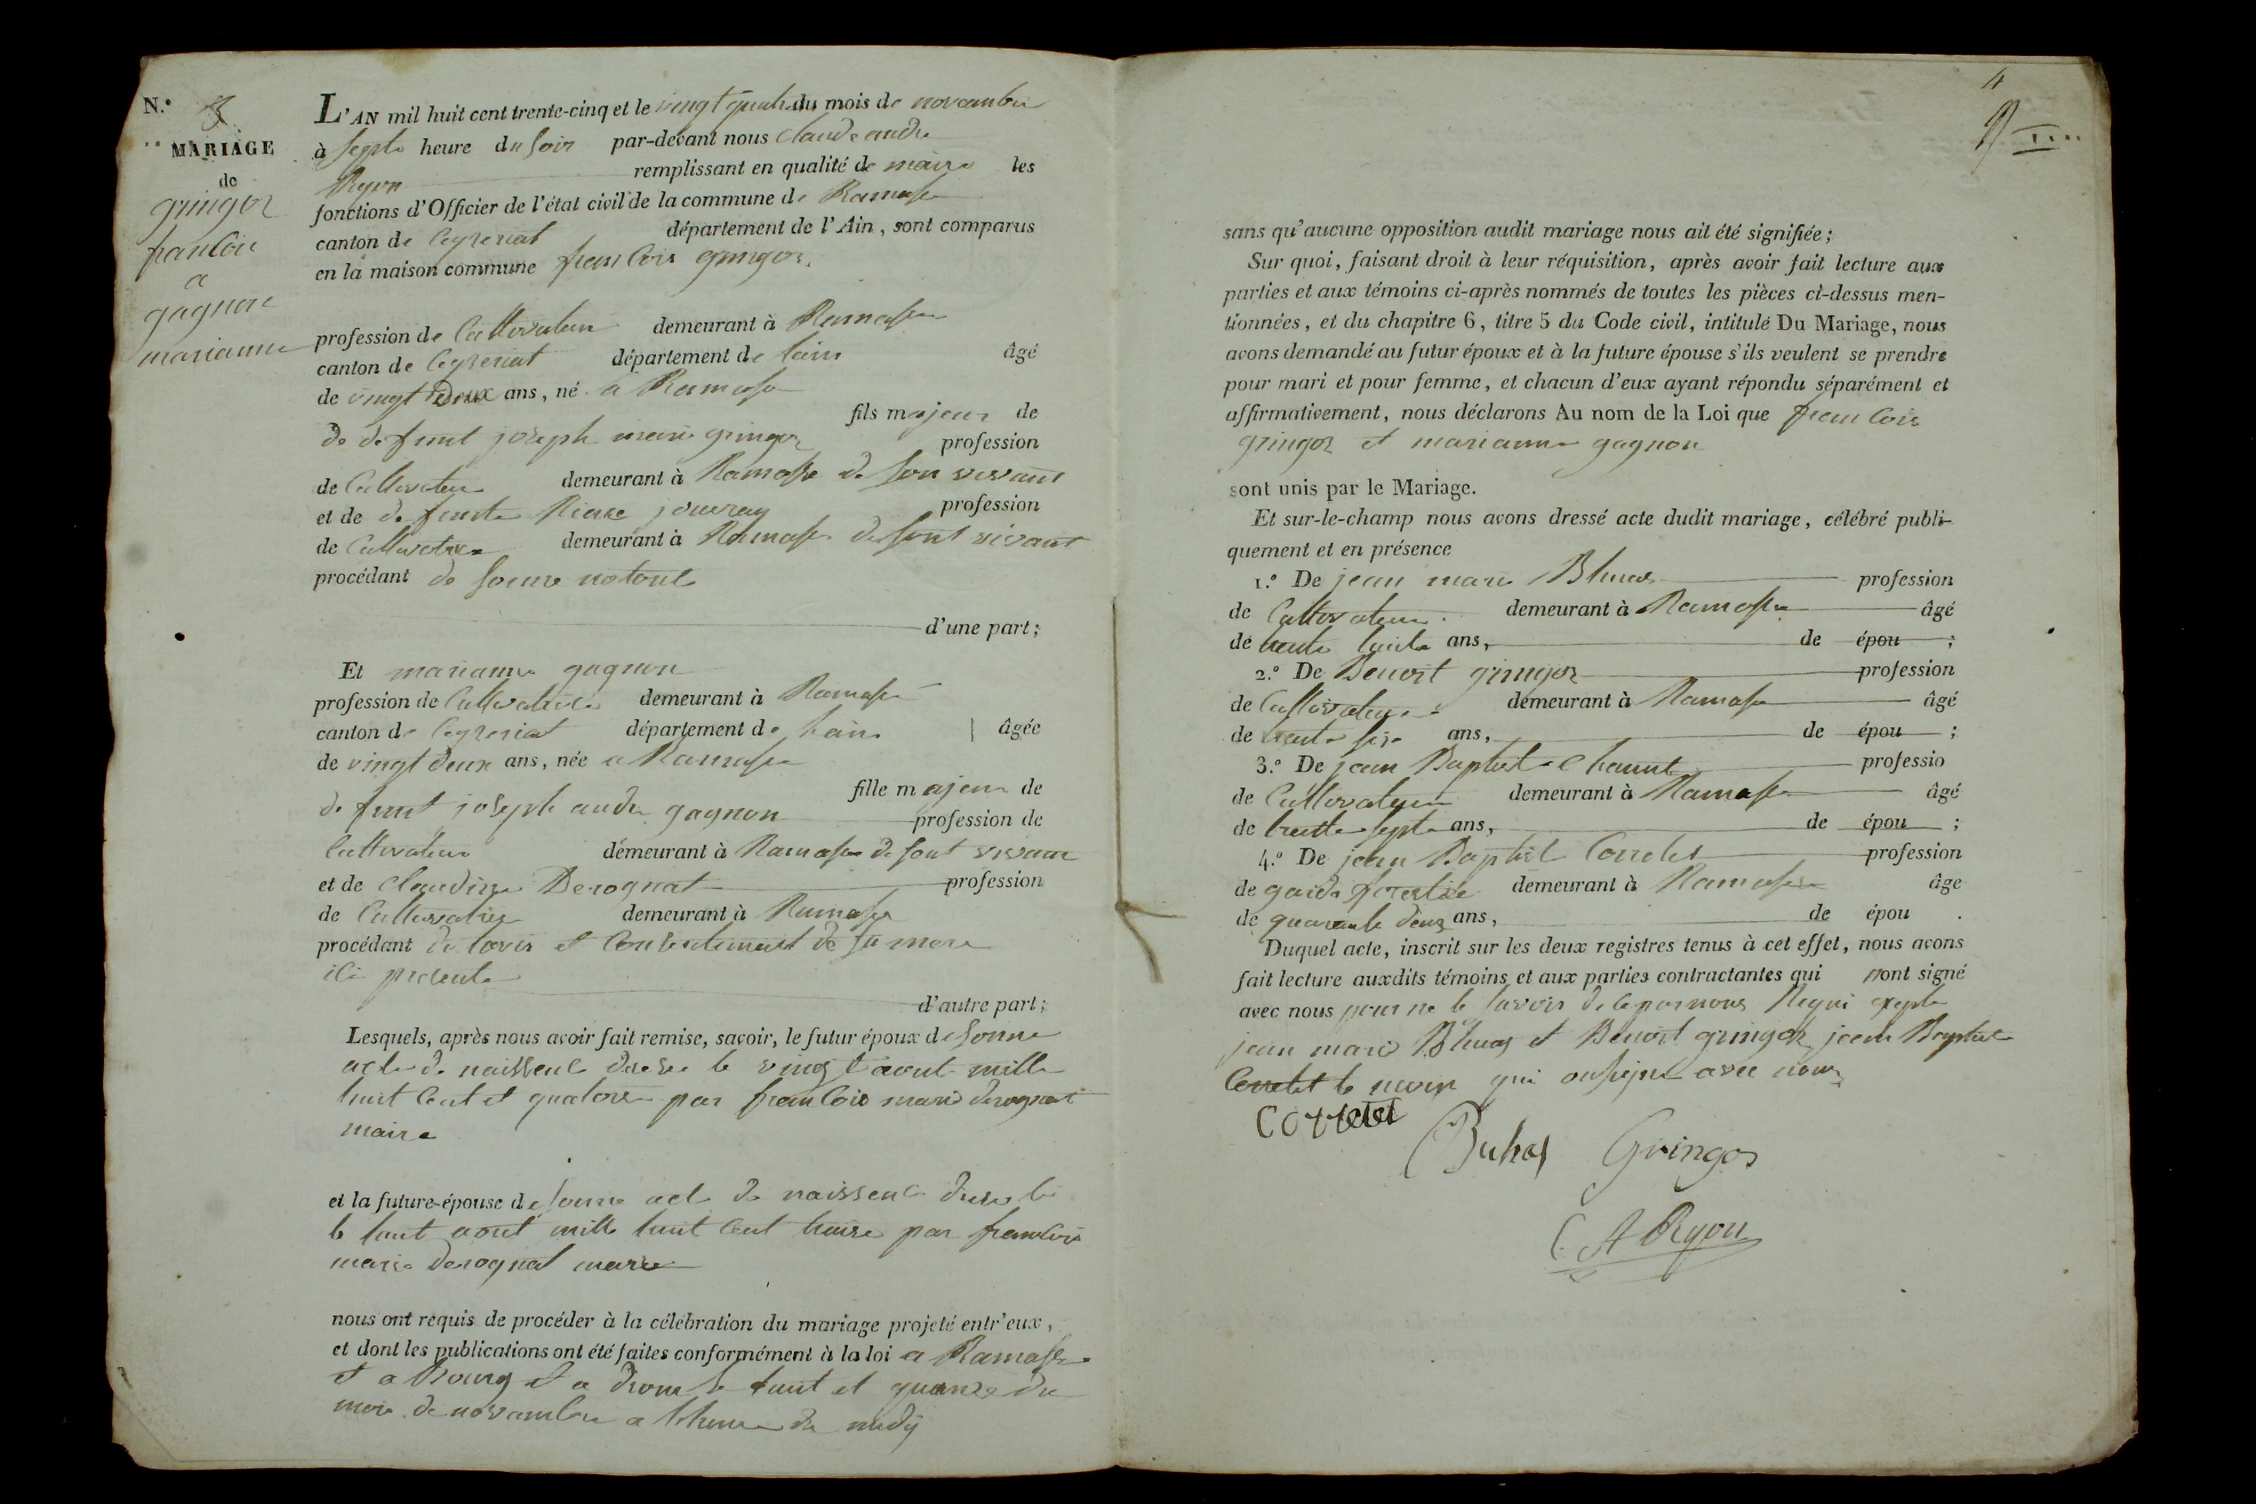 N.° 3
MARIAGE
de
gringoz
francois
a
gagnon
marianne
L'AN mil huit cent trente-cinq et le vingt quatre du mois de novembre
à septe heure du Soir par-devant nous Claude andre
Ryon remplissant en qualité de maire les
fonctions d'Officier de l'état civil de la commune de Ramasse
canton de Ceyzeriat département de l'Ain, sont comparus
en la maison commune francois gringoz
profession de Cultivateur demeurant à Ramasse
canton de Ceyzeriat département de lain âgé
de vingt deux ans, né a Ramasse
fils majeur de
de defunt joseph marie gringoz profession
de Cultivateur demeurant à Ramasse de Son vivant
et de defunte jouvray profession
de Cultivatrice demeurant à Ramasse de Sont vivant
procédant de
d'une part;
Et marianne gagnon
profession de Cultivatrice demeurant à Ramasse
canton de Ceyzeriat département de lain âgée
de vingt deux ans, née a Ramasse
fille majeure de
defunt joseph andre gagnon profession de
Cultivateur demeurant à Ramasse de Sont vivant
et de Claudine Derognat profession
de Cultivatrice demeurant à Ramasse
procédant de lavis et Consentement de Sa mere
ici presente
d'autre part;
Lesquels, après nous avoir fait remise, savoir, le futur époux de Sonne
acte de naissence le vingt aout mille
huit Cent et quatorze par francois marie derognat
maire
et la future-épouse de Sonne acte de naissence le
le huit aout mille huit Cent treize par francois
marie Derognat maire
nous ont requis de procéder à la célébration du mariage projeté entr'eux,
et dont les publications ont été faites conformément à la loi a Ramasse
et a Bourg et a drom le huit et quinze du
mois de novembre a lheure de midy
4
sans qu'aucune opposition audit mariage nous ait été signifiée;
Sur quoi, faisant droit à leur réquisition, après avoir fait lecture aux
parties et aux témoins ci-après nommés de toutes les pièces ci-dessus men-
tionnées, et du chapitre 6, titre 5 du Code civil, intitulé Du Mariage, nous
avons demandé au futur époux et à la future épouse s'ils veulent se prendre
pour mari et pour femme, et chacun d'eux ayant répondu séparément et
affirmativement, nous déclarons Au nom de la Loi que francois
gringoz et marianne gagnon
sont unis par le Mariage.
Et sur-le-champ nous avons dressé acte dudit mariage, célébré publi-
quement et en présence
1.° De jean marie profession
de Cultivateur demeurant à Ramasse âgé
de trente huit ans, de épou ;
2.° De Benoit gringoz profession
de Cultivateur demeurant à Ramasse âgé
de trente ans, de épou ;
3.° De jean Baptiste Chanut professio
de Cultivateur demeurant à Ramasse âgé
de trente septe ans, de épou ;
4.° De jean Baptiste Corretet profession
de garde forestier demeurant à Ramasse âge
de quarante deux ans, de épou .
Duquel acte, inscrit sur les deux registres tenus à cet effet, nous avons
fait lecture auxdits témoins et aux parties contractantes qui nont signé
avec nous pour ne le Savoir de ce par nous Requi exepte
jean marie et Benoit gringoz jean Baptiste
Corretet temoin qui avec nous
Corretet
Buhas Gringoz
C. A Ryon